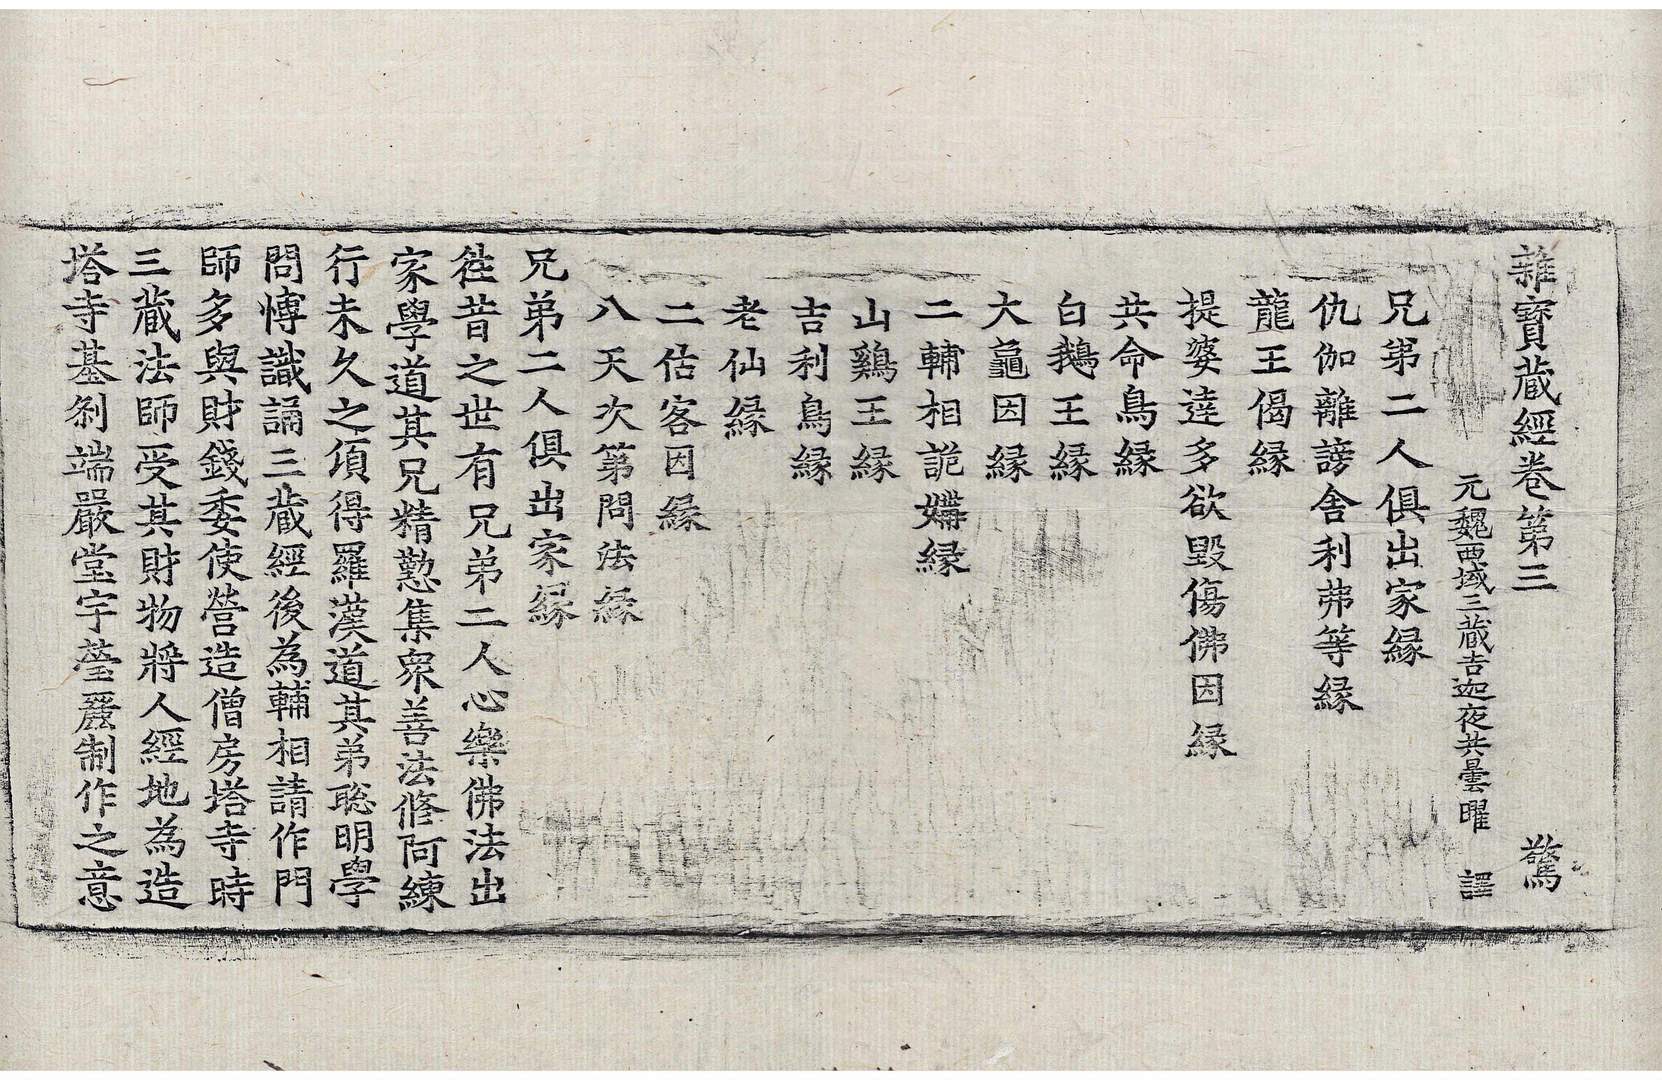 雜寶藏經卷第三 驚
元魏西域三藏吉迦夜共曇曜 譯
兄弟二人俱出家縁
仇伽離謗舎利弗等縁
龍王偈縁
提婆達多欲毀傷佛因縁
共命鳥縁
白鵝王縁
大龜因縁
二輔相詭媾縁
山鷄王縁
吉利鳥縁
老仙縁
二估客因縁
八天次第問法縁
兄弟二人俱出家縁
徃昔之世有兄弟二人心樂佛法出
家學道其兄精懃集衆善法修阿練
行未久之頃得羅漢道其弟聡明學
問博識誦三藏經後為輔相請作門
師多與財錢委使營造僧房塔寺時
三藏法師受其財物將人經地為造
塔寺基刹端嚴堂宇瑩麗制作之意